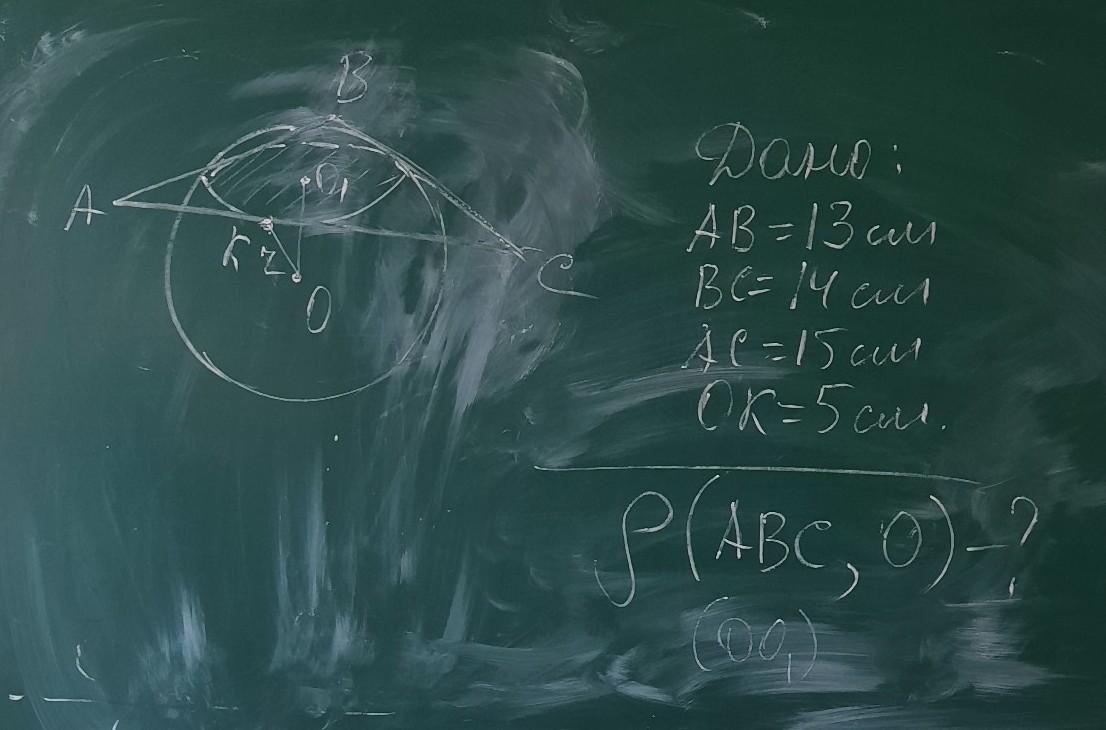 B
A
O₁
K
r
C
O
Дано:
AB = 13 см
BC = 14 см
AC = 15 см
OK = 5 см.
ρ(ABC, O) - ?
(OO₁)